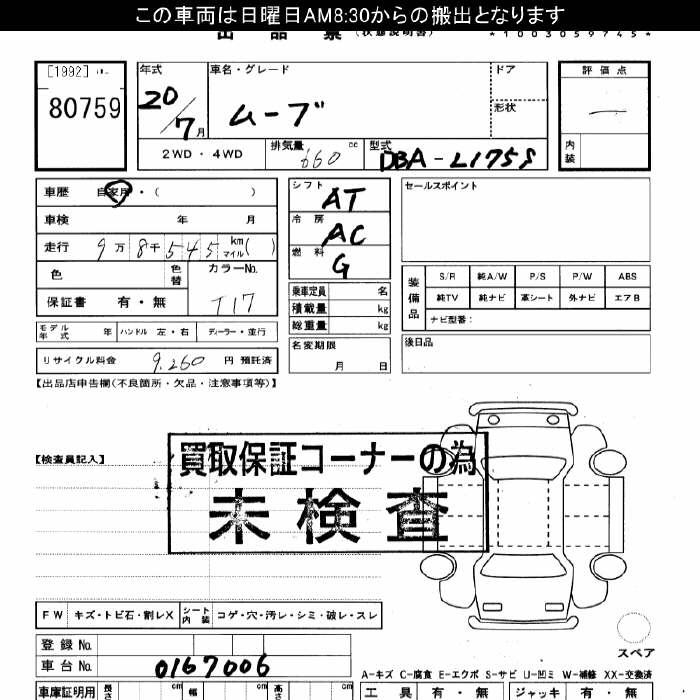 この車両は日曜日AM8:30からの搬出となります
出品票 (状態説明書) *1003059745*
[1992]
80759
年式 車名・グレード ドア 評価点
20/7月 ムーブ 形状 —
内装
2WD・4WD 排気量 660 cc 型式 DBA-L175S
車歴 自家用・( )
車検 年 月
走行 9万8千545 km マイル( )
色 色替 カラーNo. T17
保証書 有・無
モデル年式 年 ハンドル 左・右 ディーラー・並行
リサイクル料金 9,260 円 預託済
シフト AT
冷房 AC
燃料 G
乗車定員 名
積載量 kg
総重量 kg
名変期限
月 日
セールスポイント
装備品
S/R 純A/W P/S P/W ABS
純TV 純ナビ 革シート 外ナビ エアB
ナビ型番:
後日品
【出品店申告欄(不良箇所・欠品・注意事項等)】
【検査員記入】
買取保証コーナーの為
未検査
FW キズ・トビ石・割レX シート内装 コゲ・穴・汚レ・シミ・破レ・スレ
登録No.
車台No. 0167006
スペア
A-キズ C-腐食 E-エクボ S-サビ U-凹ミ W-補修 XX-交換済
車庫証明用 長さ cm 幅 cm 高さ cm
工具 有・無 ジャッキ 有・無